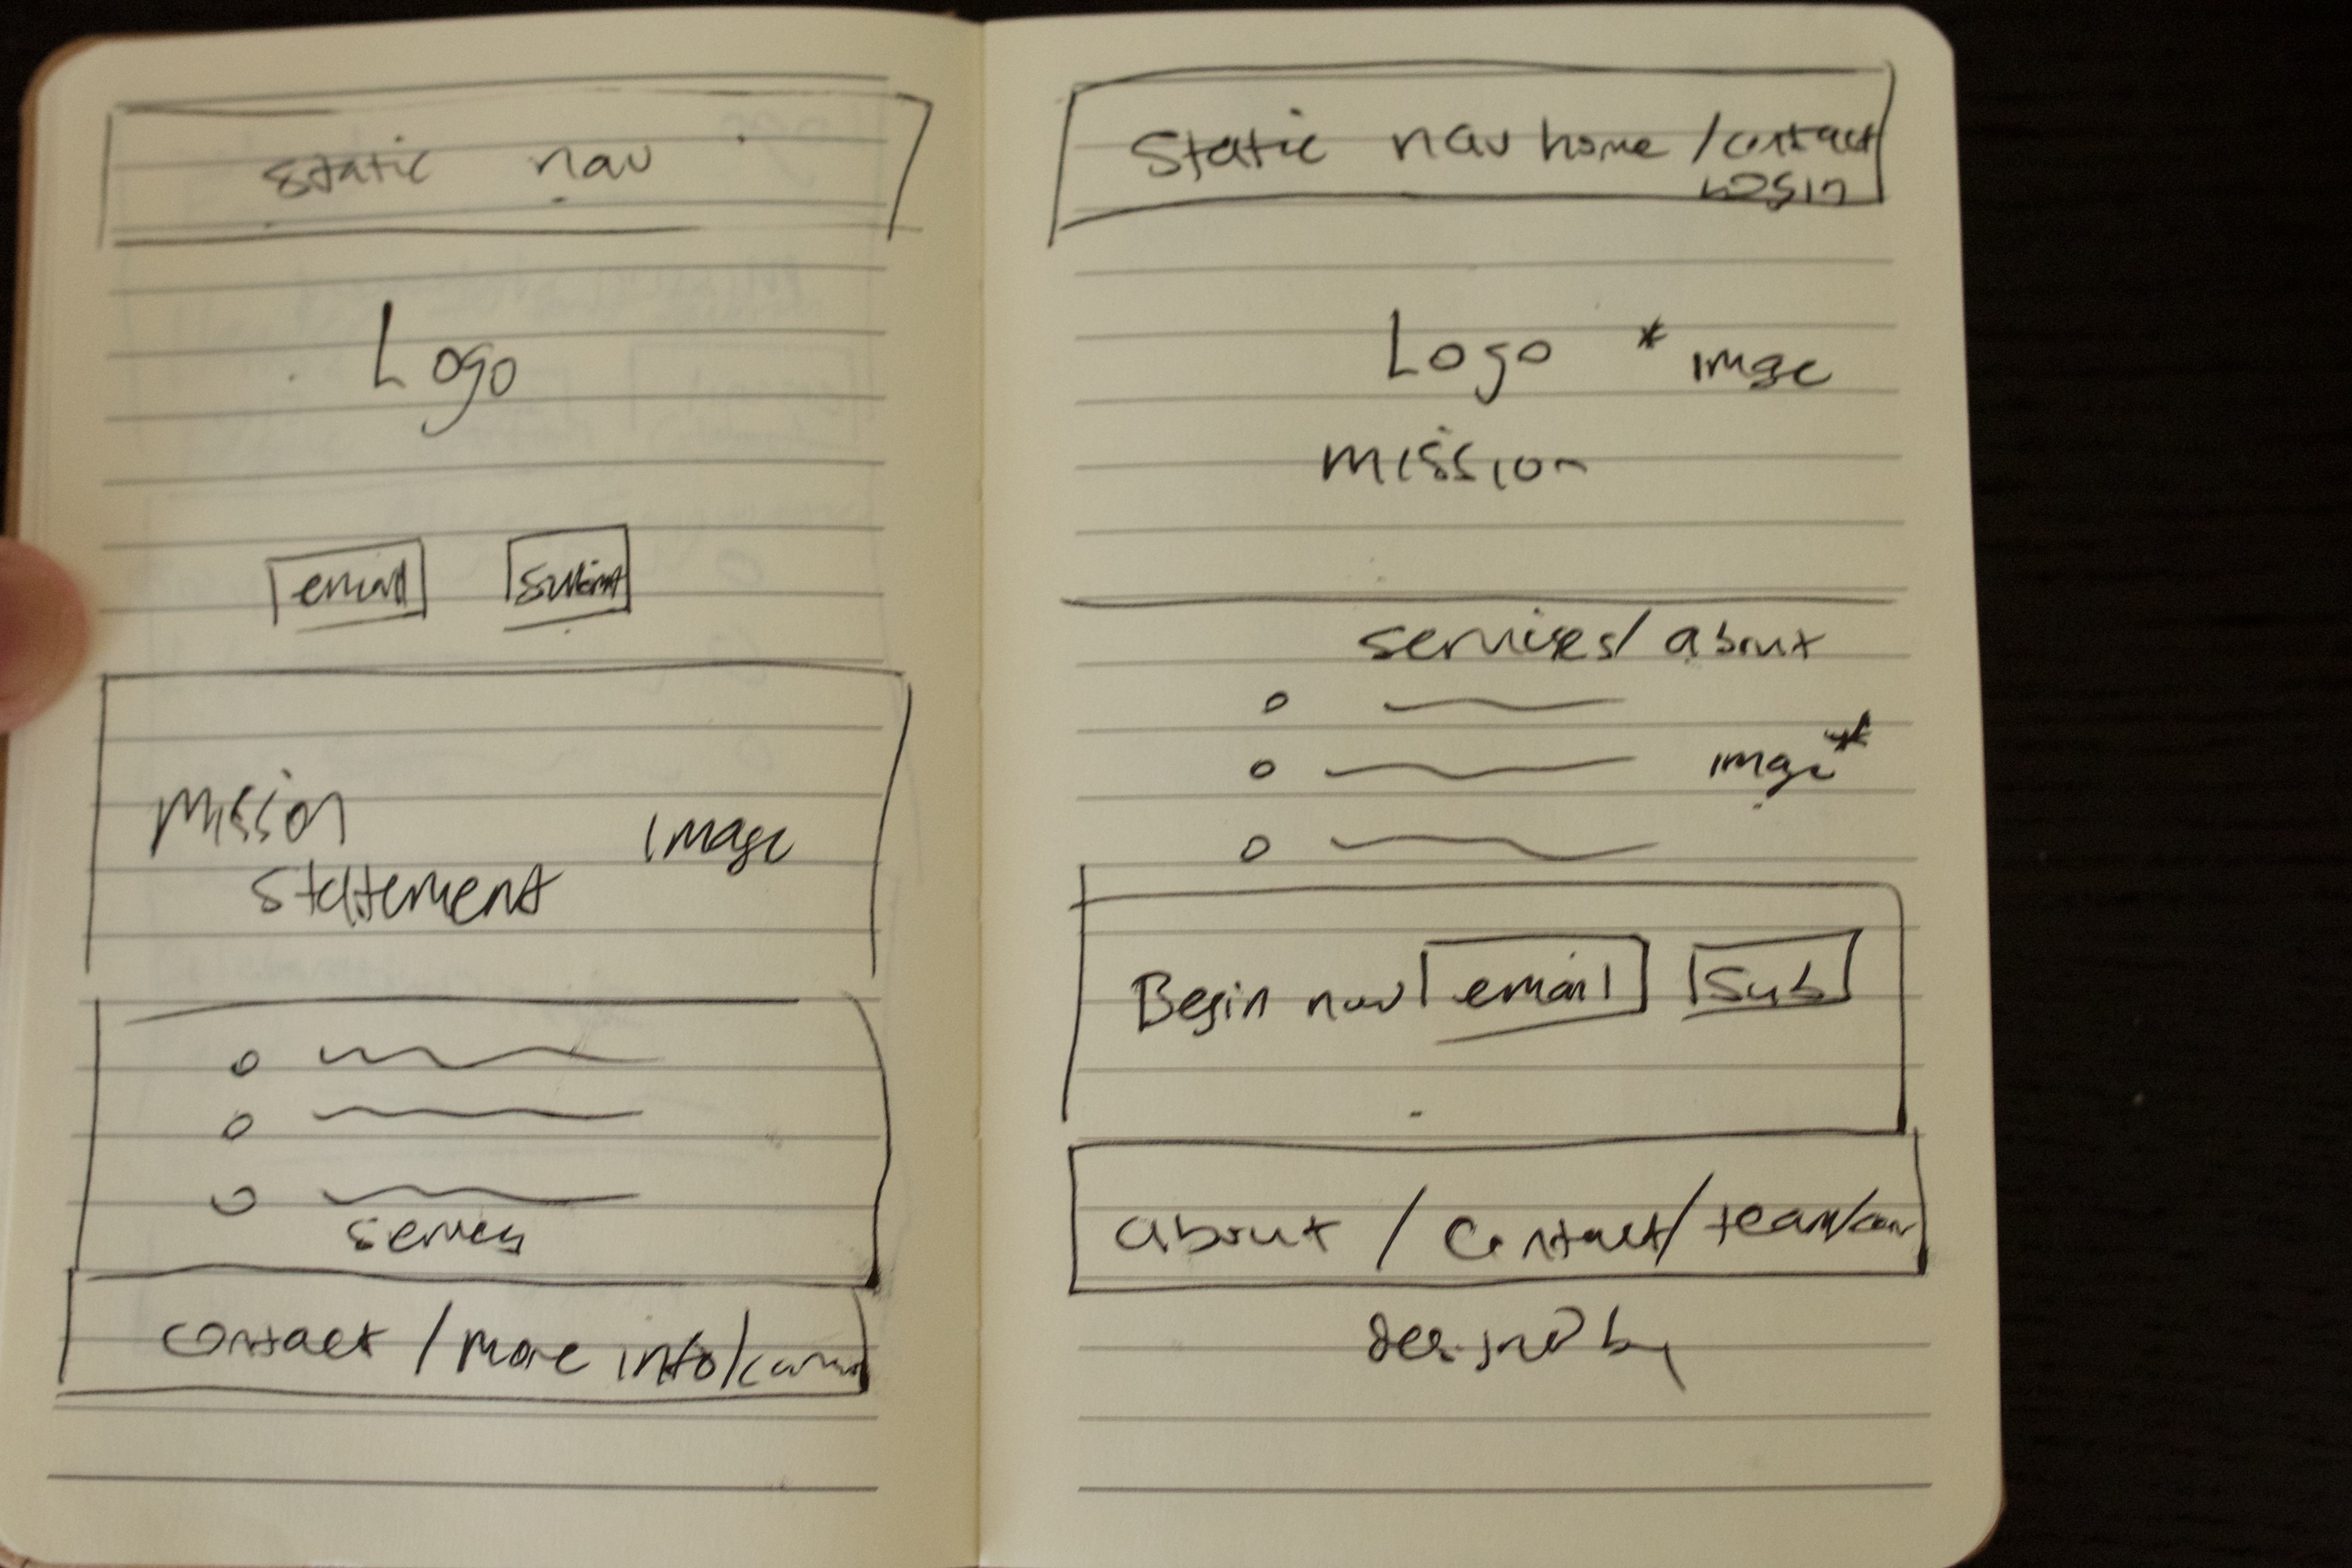 static nav
Logo
email submit
Mission
Statement Image
contact / more info /
Static nav home / contact
Login
Logo * image
mission
services / about
image *
Begin now email Sub
about / contact / team /
designed by